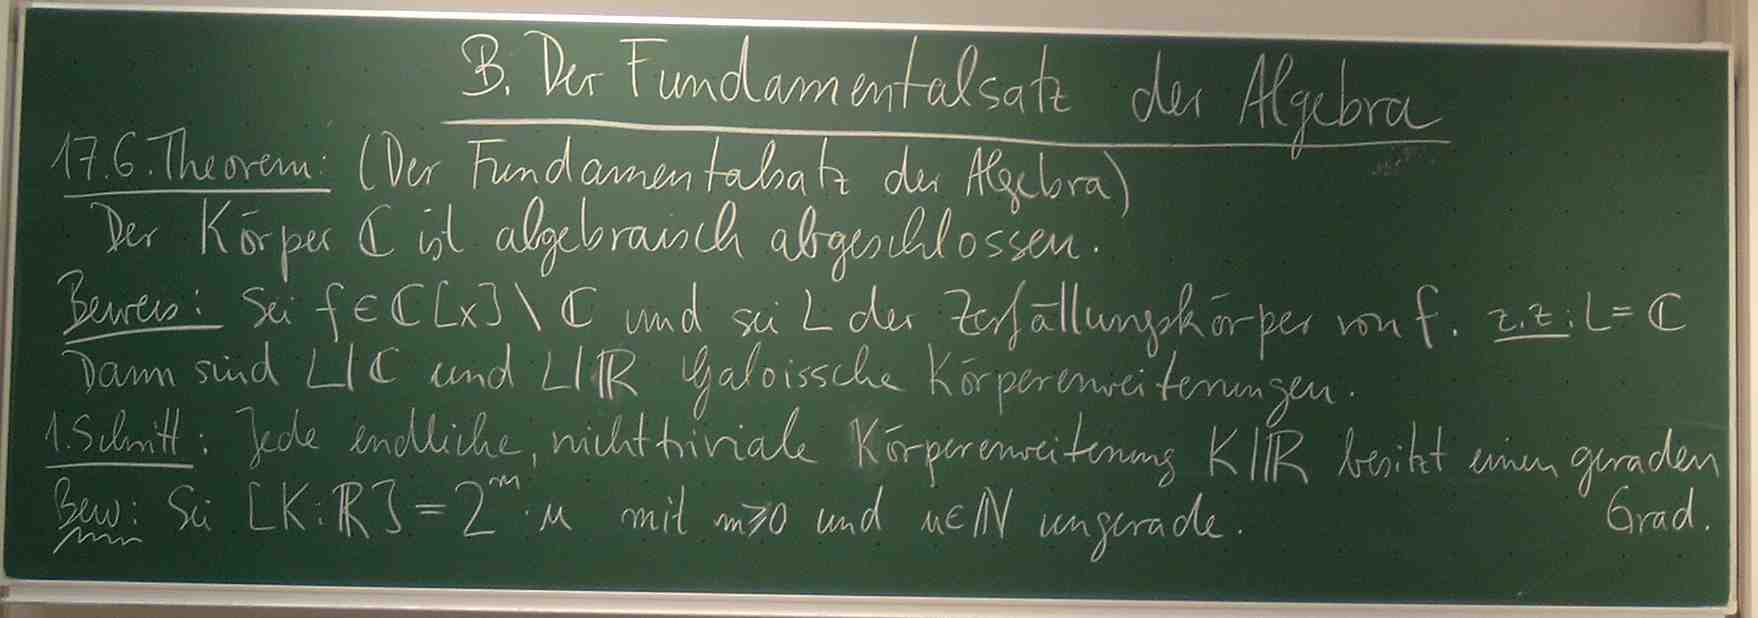 B. Der Fundamentalsatz der Algebra
17.6. Theorem: (Der Fundamentalsatz der Algebra)
Der Körper ℂ ist algebraisch abgeschlossen.
Beweis: Sei f ∈ ℂ[x] \ ℂ und sei L der Zerfällungskörper von f. z.z.: L = ℂ
Dann sind L|ℂ und L|ℝ Galoissche Körpererweiterungen.
1. Schritt: Jede endliche, nichttriviale Körpererweiterung K|ℝ besitzt einen geraden Grad.
Bew: Sei [K:ℝ] = 2^m · u mit m ≥ 0 und u ∈ ℕ ungerade.